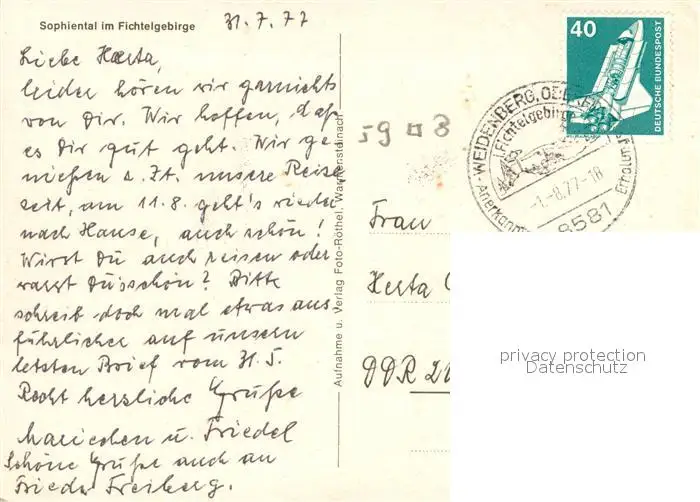 Sophiental im Fichtelgebirge
31.7.77
Liebe Herta,
leider hören wir garnichts
von Dir. Wir hoffen, daß
es Dir gut geht. Wir ge-
nießen z. Zt. unsere Reise
zeit, am 11.8. geht's wieder
nach Hause, auch schön!
Wirst Du auch reisen oder
warst Du schon? Bitte
schreib doch mal etwas aus
führlicher auf unsern
letzten Brief vom 31.5.
Recht herzliche Grüße
Mariechen u. Friedel
Schöne Grüße auch an
Frieda Freiberg.
Aufnahme u. Verlag Foto-Röthel,
59 8
40
DEUTSCHE BUNDESPOST
WEIDENBERG,
i. Fichtelgebirge
-1.-8.77-18
8581
Frau
Herta
DDR
privacy protection
Datenschutz